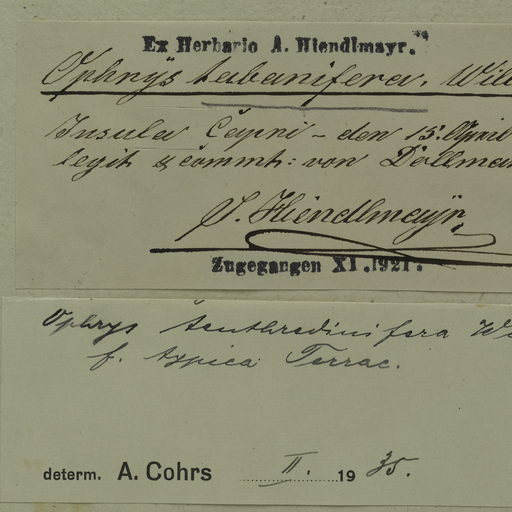 Ex Herbario A. Hiendlmayr.
Ophrÿs tabanifera. Willd
Insula Capri – den 15. April
legit & commt: von Dollman
Hiendlmayr,
Zugegangen XI.1921.
Ophrys tenthredinifera W
f. typica Terrac.
determ. A. Cohrs II. 1935.